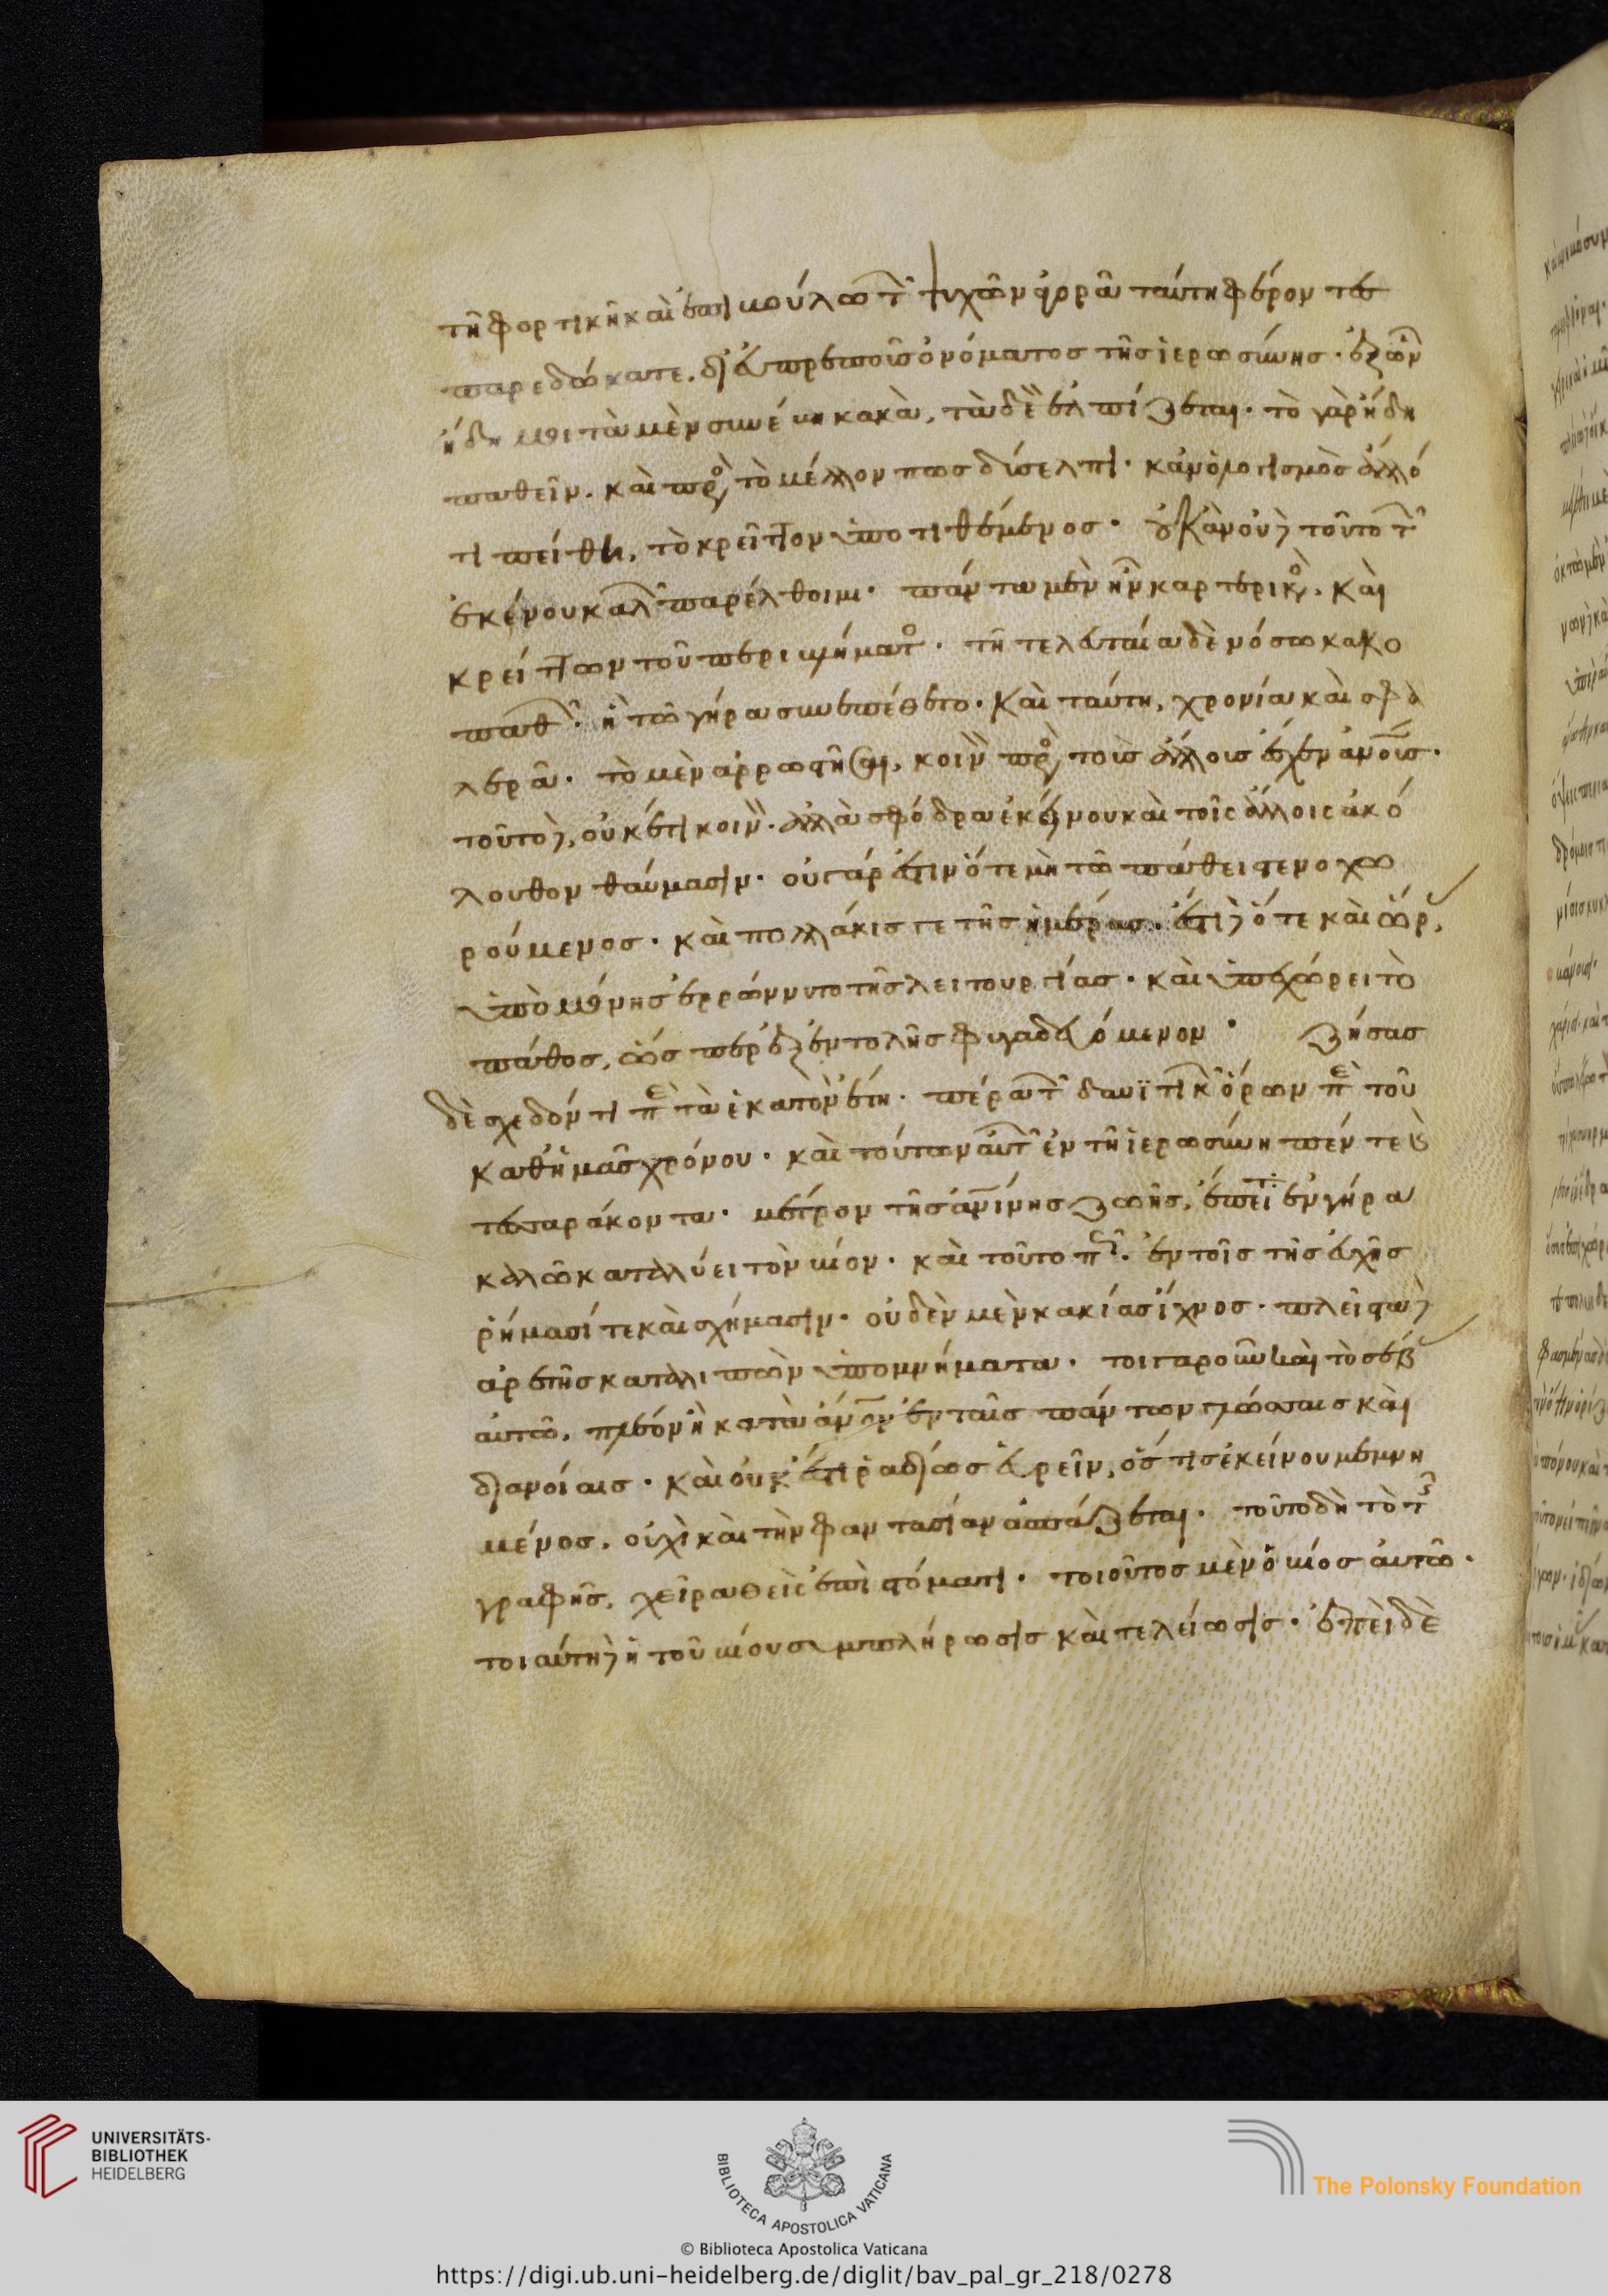 τῇ φορτικῇ καὶ ἐπιβούλω τῶν ψυχῶν ἀγορᾶ ταύτη φέροντες
παρεδώκατε. δι' εὐπρεποῦς ὀνόματος τῆς ἱερωσύνης. ἐξ ὧν
ἤδη μοι τὰ μὲν συνέβη κακὰ, τὰ δὲ ἐλπίζεται. τὸ γὰρ ἤδη
παθεῖν. καὶ πρὸς τὸ μέλλον πως δύσελπι. κἂν ὁ λογισμὸς ἄλλό
τι πείθη, τὸ κρεῖττον ὑποτιθέμενος. οὐκ ἂν οὐδὲ τοῦτο τῶν
ἐκείνου καλῶν παρέλθοιμι. πάντα μὲν ἦν καρτερικὸς. καὶ
κρείττων τοῦ περιβλήματος. τῇ τελευταία δὲ νόσω κακο
παθῶν. ἣ τῶ γήρα συνεπέθετο. καὶ ταύτη, χρονία καὶ σφα
λερᾶ. τὸ μὲν ἀρρωστῆσαι, κοινὸν πρὸς τοὺς ἄλλους εἶχεν ἀνθρώπους.
τοῦτο δὲ, οὐκέτι κοινὸν. ἀλλὰ σφόδρα ἐκείνου καὶ τοῖς ἄλλοις ἀκό
λουθον θαύμασιν. οὐ γάρ ἔστιν ὅτε μὴ τῶ πάθει στενοχω
ρούμενος. καὶ πολλάκις γε τῆς ἡμέρας. ἔστι δὲ ὅτε καὶ ὥρας,
ὑπὸ μόνης ἐρρώννυτο τῆς λειτουργίας. καὶ ὑπεχώρει τὸ
πάθος, ὥσπερ ἐξ ἐντολῆς φυγαδευόμενον. ζήσας
δὲ σχεδόν τι περὶ τὰ ἑκατὸν ἔτη. πέρα τῶν δαυϊτικῶν ὅρων περὶ τοῦ
καθ' ἡμᾶς χρόνου. καὶ τούτων αὐτῶν ἐν τῇ ἱερωσύνη πέντε καὶ
τεσσαράκοντα. μέτρον τῆς ἀνθρωπίνης ζωῆς, ἐπεὶ ἐν γήρα
καλῶ καταλύει τὸν βίον. καὶ τοῦτο πῶς. ἐν τοῖς τῆς εὐχῆς
ῥήμασί τε καὶ σχήμασιν. οὐδὲν μὲν κακίας ἴχνος. πλεῖστα δὲ
ἀρετῆς καταλιπὼν ὑπομνήματα. τοιγαροῦν καὶ τὸ σέβας
αὐτῶ. πλέον ἢ κατὰ ἄνθρωπον ἐν ταῖς πάντων γλώσσαις καὶ
διανοίαις. καὶ οὐκ ἔστι ῥαδίως εὑρεῖν, ὅς τις ἐκείνου μεμνη
μένος. οὐχὶ καὶ τὴν φαντασίαν ἀσπάζεται. τοῦτο δὴ τὸ τῆς
γραφῆς, χεῖρα θεὶς ἐπὶ στόματι. τοιοῦτος μὲν ὁ βίος αὐτῶ.
τοιαύτη δὲ ἡ τοῦ βίου συμπλήρωσις καὶ τελείωσις. ἐπεὶ δὲ
UNIVERSITÄTS-
BIBLIOTHEK
HEIDELBERG
BIBLIOTECA APOSTOLICA VATICANA
The Polonsky Foundation
© Biblioteca Apostolica Vaticana
https://digi.ub.uni-heidelberg.de/diglit/bav_pal_gr_218/0278